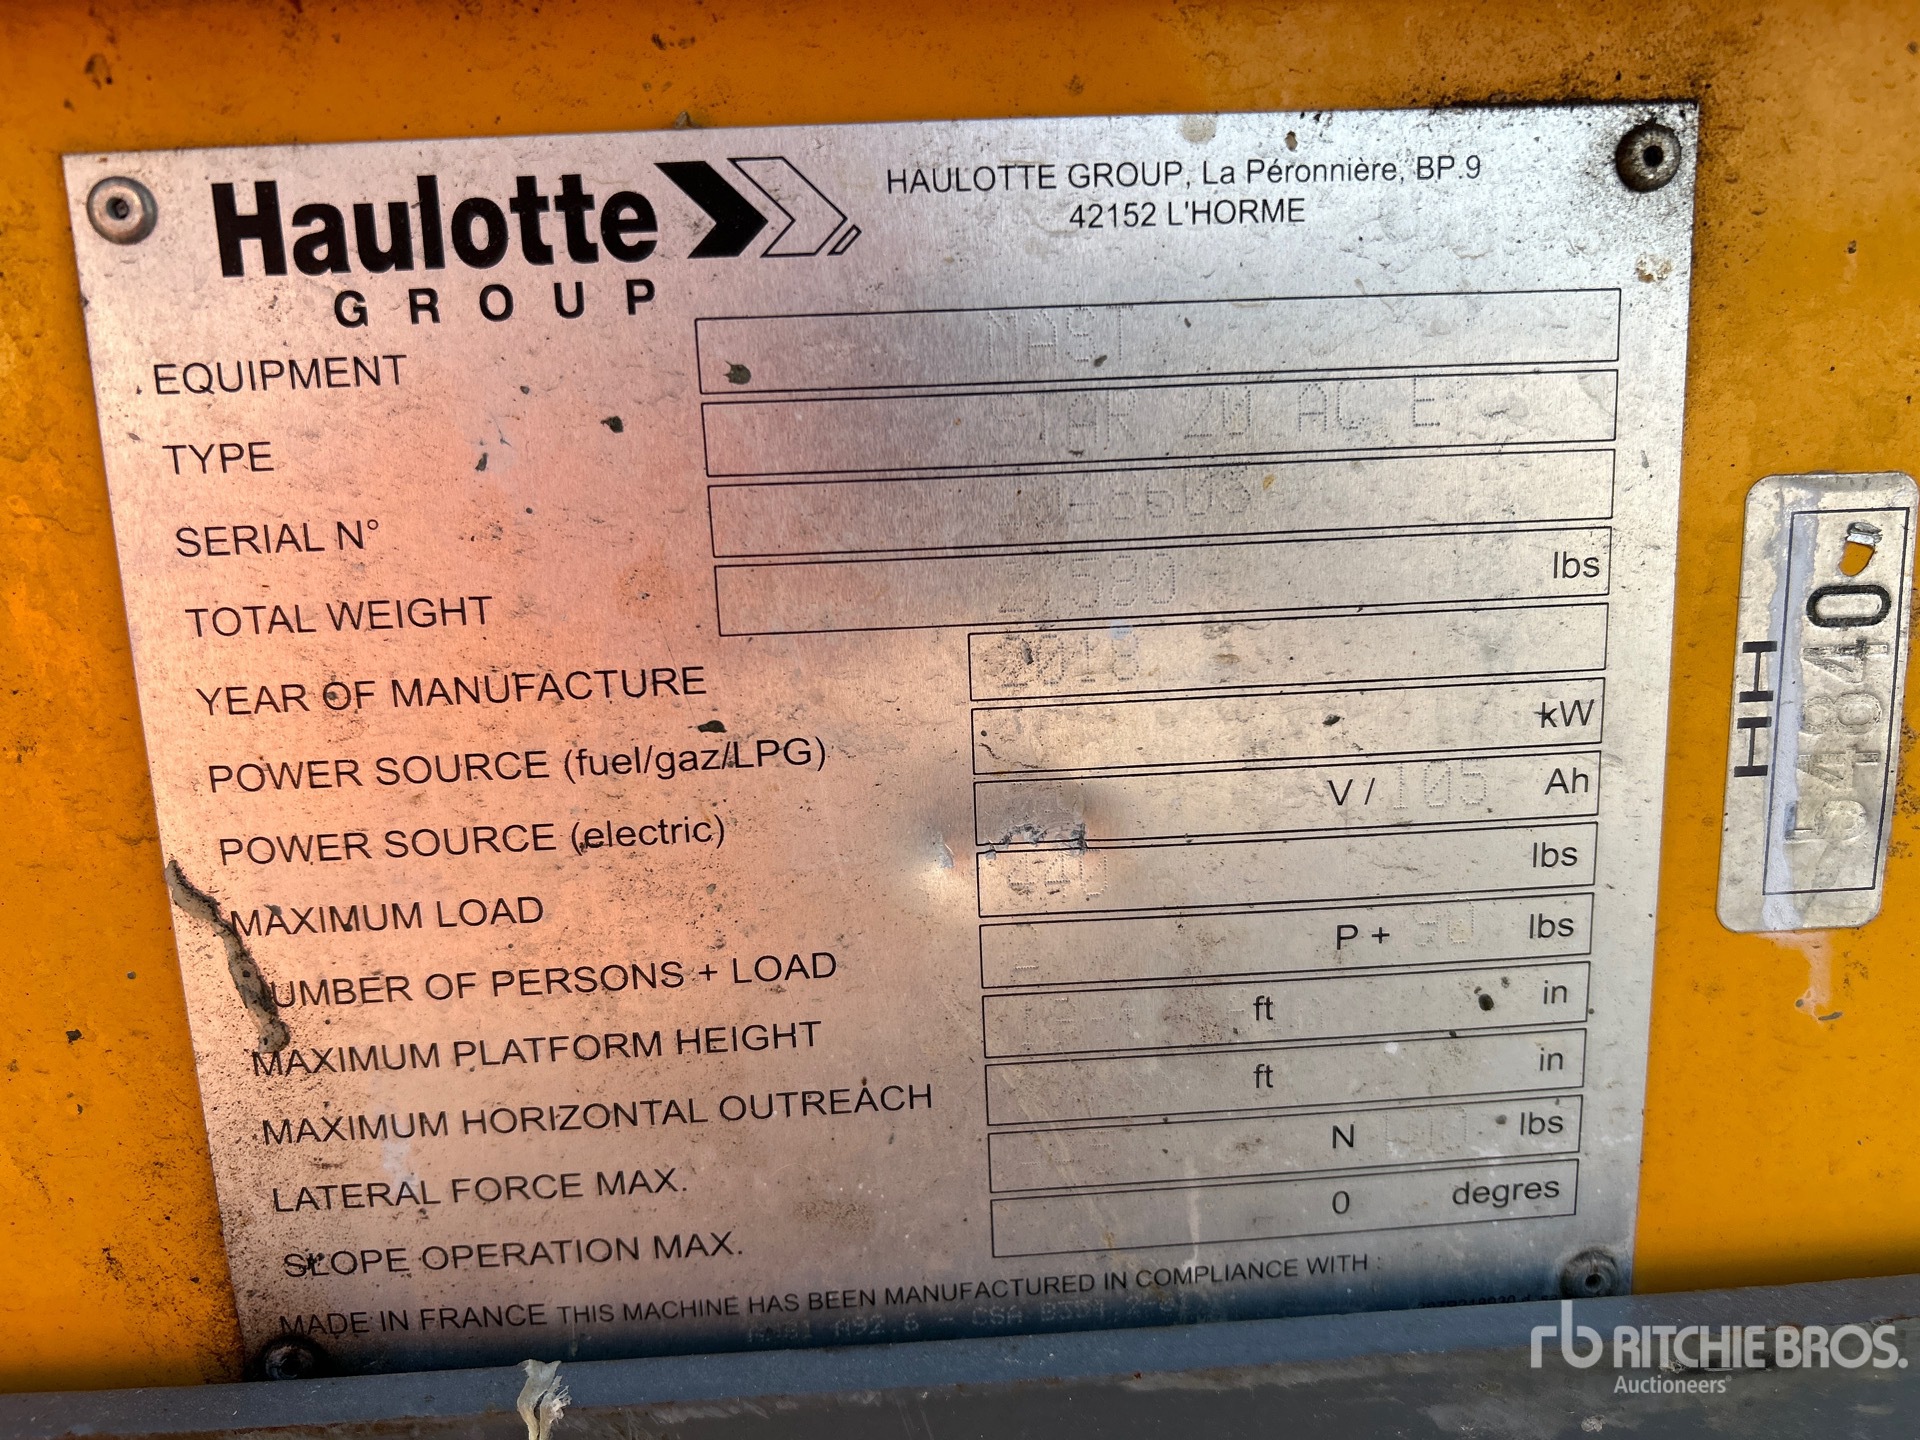 Haulotte
GROUP
HAULOTTE GROUP, La Péronnière, BP.9
42152 L'HORME
EQUIPMENT MAST
TYPE STAR 20 AC E
SERIAL N°
TOTAL WEIGHT lbs
YEAR OF MANUFACTURE 2018
POWER SOURCE (fuel/gaz/LPG) kW
POWER SOURCE (electric) V / 105 Ah
MAXIMUM LOAD lbs
NUMBER OF PERSONS + LOAD P + lbs
MAXIMUM PLATFORM HEIGHT ft in
MAXIMUM HORIZONTAL OUTREACH ft in
LATERAL FORCE MAX. N lbs
SLOPE OPERATION MAX. 0 degres
MADE IN FRANCE THIS MACHINE HAS BEEN MANUFACTURED IN COMPLIANCE WITH :
A92.6 - CSA
HH
54840
rb RITCHIE BROS.
Auctioneers